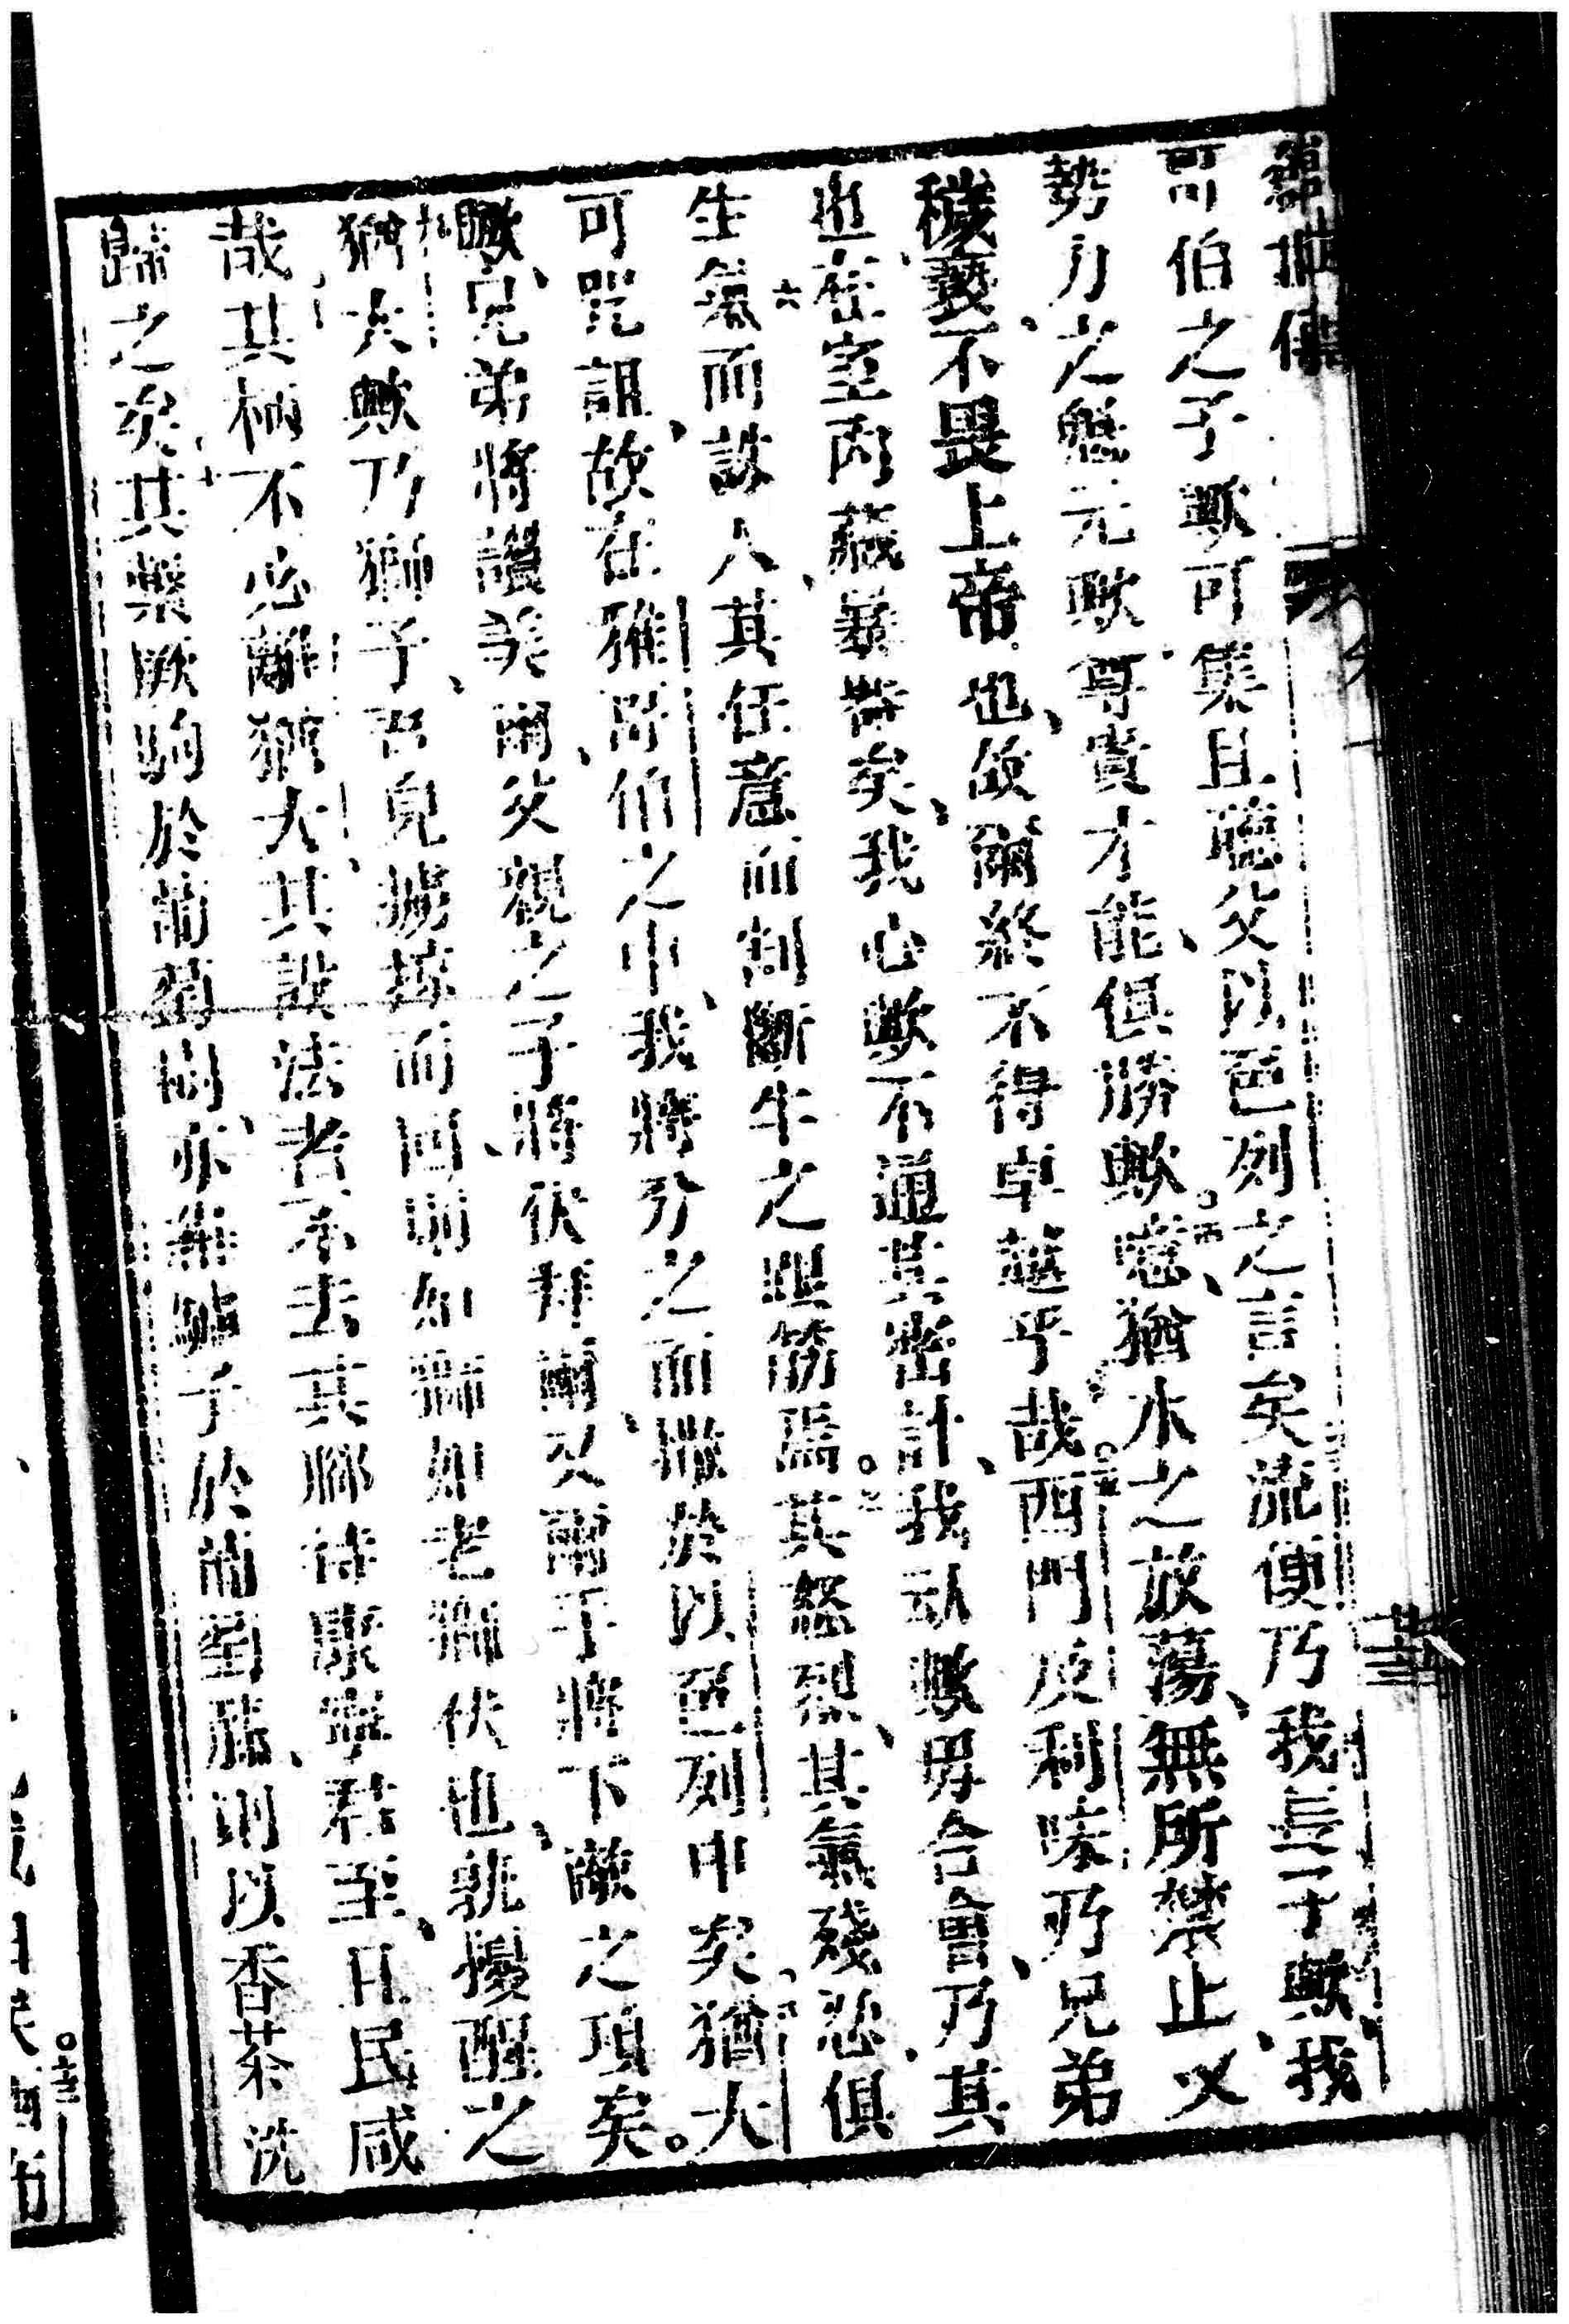 可伯之子歟可集且聽父以色列之言矣流便乃我長子歟我
勢力之無元歟尊貴才能俱勝歟惡猶水之放蕩無所禁止乂
穢褻不畏上帝也故爾終不得卓越乎哉西門及利味乃兄弟
也在室內藏暴器矣我心歟不通其密計我歟毋合會乃其
生氣而誅人其任意而割斷牛之腿筋焉其怒烈其氣殘忍俱
可咒詛故在雅哥伯之中我將分之而撒於以色列中矣猶大
歟兄弟將讚美爾父親之子將伏拜爾又爾手將下敵之項矣
猶大歟乃獅子吾兒擄掠而回則如獅如老獅伏也孰擾醒之
哉其柄不必離猶大其設法者不去其腳待聚寧君至且民咸
歸之矣其繫厥駒於葡萄樹亦繫驢子於葡萄藤則以香茶洗